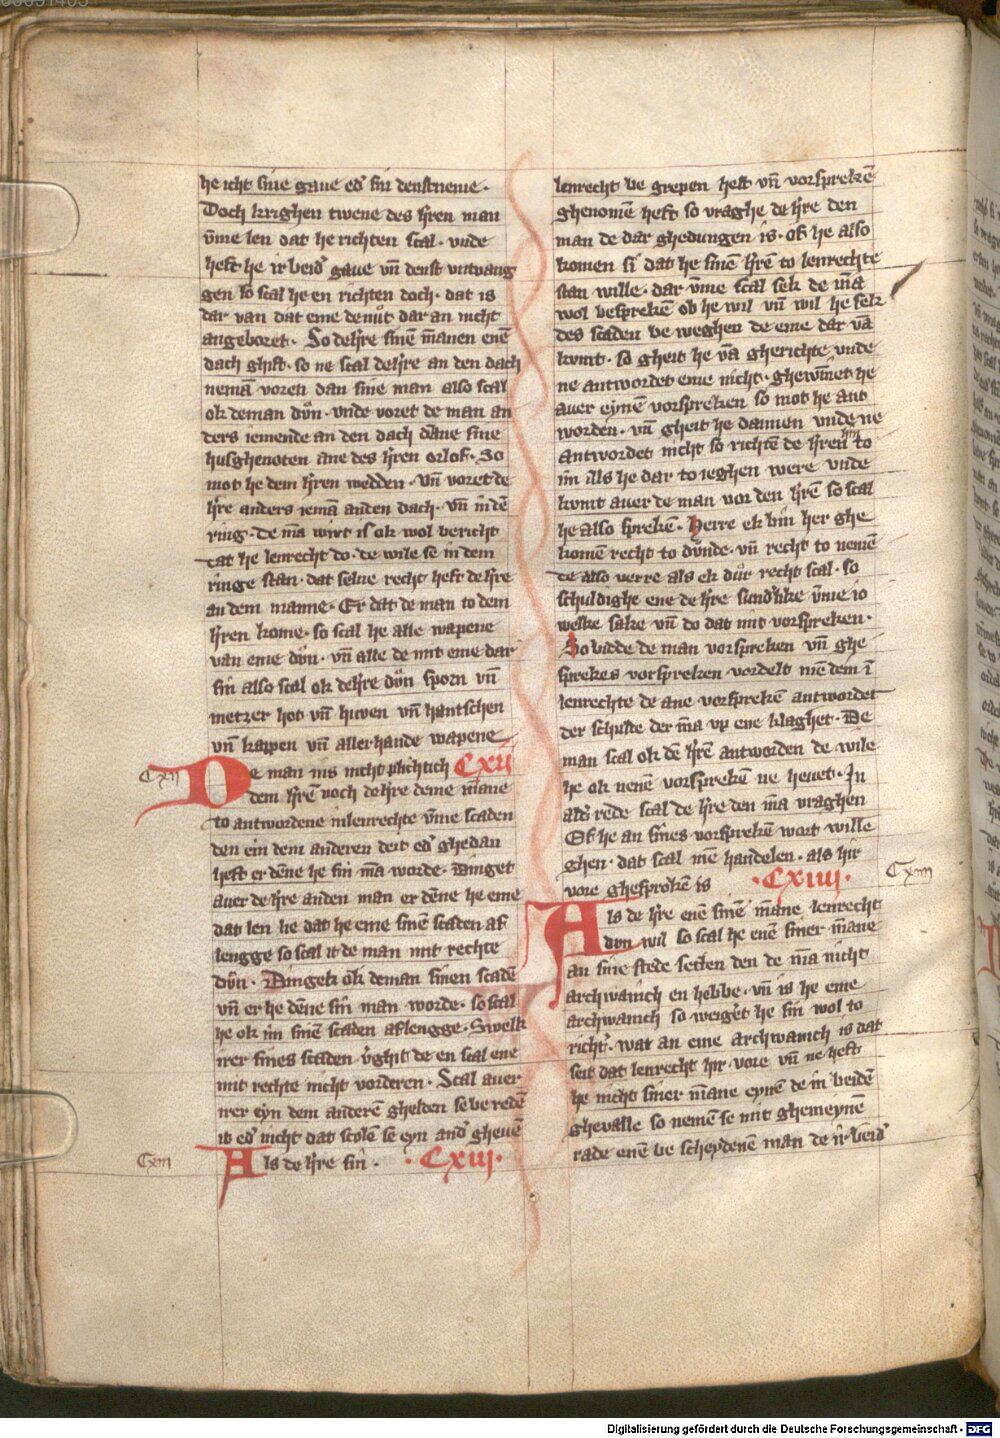 he icht sine gaue ed' sin denstneme.
Doch krighen twene des h'ren man
v̄me len dat he richten scal. vnde
heft he ir beid' gaue vn̄ denst vntvang
gen so scal he en richten doch. dat is
dar van dat eme de nut dar an nicht
angeboret. So de h're sinē mānen enē
dach ghift. so ne scal de h're an den dach
nemā voren dan sine man also scal
ok de man dvn. vnde voret de man an
ders iemende an den dach dāne sine
husghenoten ane des h'ren orlof. So
mot he dem h'ren wedden. vn̄ voret de
h're anders iemā an den dach. vn̄ in dē
ring. de mā wirt is ok wol bericht
dat he lenrecht do. de wile se in dem
ringe stan. dat selue recht heft de h're
an dem manne. Er dat de man to dem
h'ren kome. so scal he alle wapene
van eme dvn. vn̄ alle de mit eme dar
sin also scal ok de h're dvn sporn vn̄
metzer hot vn̄ huven vn̄ hantschen
vn̄ kappen vn̄ allerhande wapene
Cxii De man nis nicht plichtich Cxii
dem h'rē noch de h're deme māne
to antwordene inlenrechte v̄me scaden
den ein dem anderen deit ed' ghedan
heft er dēne he sin mā worde. Dinget
auer de h're an den man er dēne he eme
dat len lie dat he eme sinē scaden af
lengge so scal it de man mit rechte
dvn. Dinget ok de man sinen scadē
vn̄ er he dēne sin man worde. so scal
he ok im sinē scaden aflengge. Swelk
irer sines scaden v'ghit de en scal ene
mit rechte nicht vorderen. Scal auer
irer eyn dem anderē ghelden se be redē
it ed' nicht dat scolē se eyn and' gheuē
Cxiii Als de h're sin. . Cxiii.
lenrecht be grepen heft vn̄ vorsprekē
ghenomē heft so vraghe de h're den
man de dar ghedungen is. ok he also
komen si dat he sinē h'rē to lenrechte
stan wille. dar v̄me scal sek de mā
wol besprekē ob he wil vn̄ wil he sek
des scaden be weghen de eme dar vā
kvmt. so gheit he vā gherichte vnde
ne antwordet eme nicht. ghewīnet he
auer eynē vorspreken so mot he ant
worden. vn̄ gheit he dannen vnde ne
antwordet nicht so richtē de h'ren to
im als he dar to ieghen were vnde
kvmt auer de man vor den h'rē so scal
he also sprekē. Herre ek bin her ghe
komē recht to dvnde. vn̄ recht to nemē
de also verre als ek dur recht scal. so
schuldighe ene de h're sund'like v̄me io
welke sake vn̄ do dat mit vorspreken.
So bidde de man vorspreken vn̄ ghe
sprekes vorspreken vordelt mē dem ī
lenrechte de ane vorsprekē antwordet
der schulde der mā vp ene klaghet. De
man scal ok dē h'rē antworden de wile
he ok nenē vorsprekē ne heuet. In
als' rede scal de h're den mā vraghen
Ob he an sines vorsprekē wort wille
ghen. dat scal mē handelen. als hir
vore ghesprokē is .Cxiiii. Cxiiii
Als de h're enē sinē māne lenrecht
dvn wil so scal he enē siner māne
an sine stede setten den de mā nicht
archwanich en hebbe. vn̄ is he eme
archwanich so weiget he sin wol to
richt'. wat an eme archwanich is dat
seit dat lenrecht hir. vore vn̄ ne heft
he nicht siner māne eynē de in beidē
ghevalle so nemē se mit ghemeynē
rade enē be scheydenē man de ir beid'
Digitalisierung gefördert durch die Deutsche Forschungsgemeinschaft - DFG